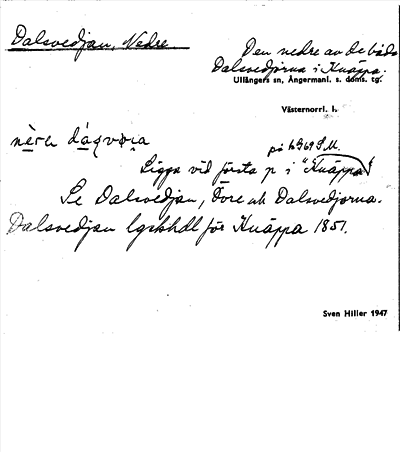 Dalsvedjan, Nedre
Den nedre av de båda
Dalsvedjorna i Knäppa.
Ullångers sn, Ångermanl. s. doms. tg.
Västernorrl. l.
på h969 S.M.
Ligga vid första p i "Knäppa"
Se Dalsvedjan, Övre och Dalsvedjorna.
Dalsvedjan lgskhdl för Knäppa 1851.
Sven Hiller 1947